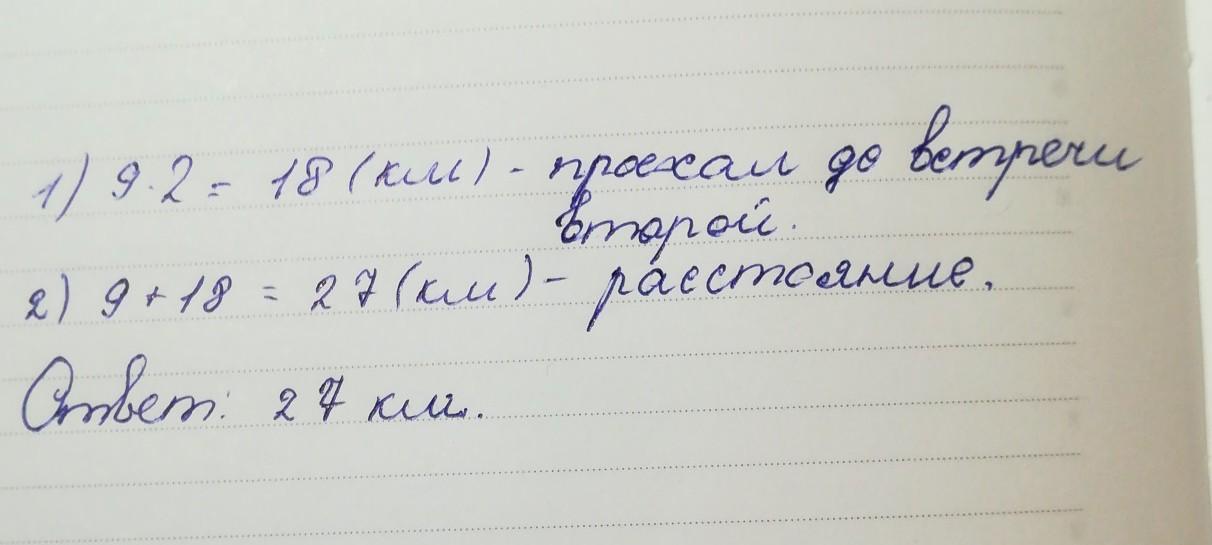 1) 9·2 = 18 (км) - проехал до встречи
второй.
2) 9 + 18 = 27 (км) - расстояние.
Ответ: 27 км.